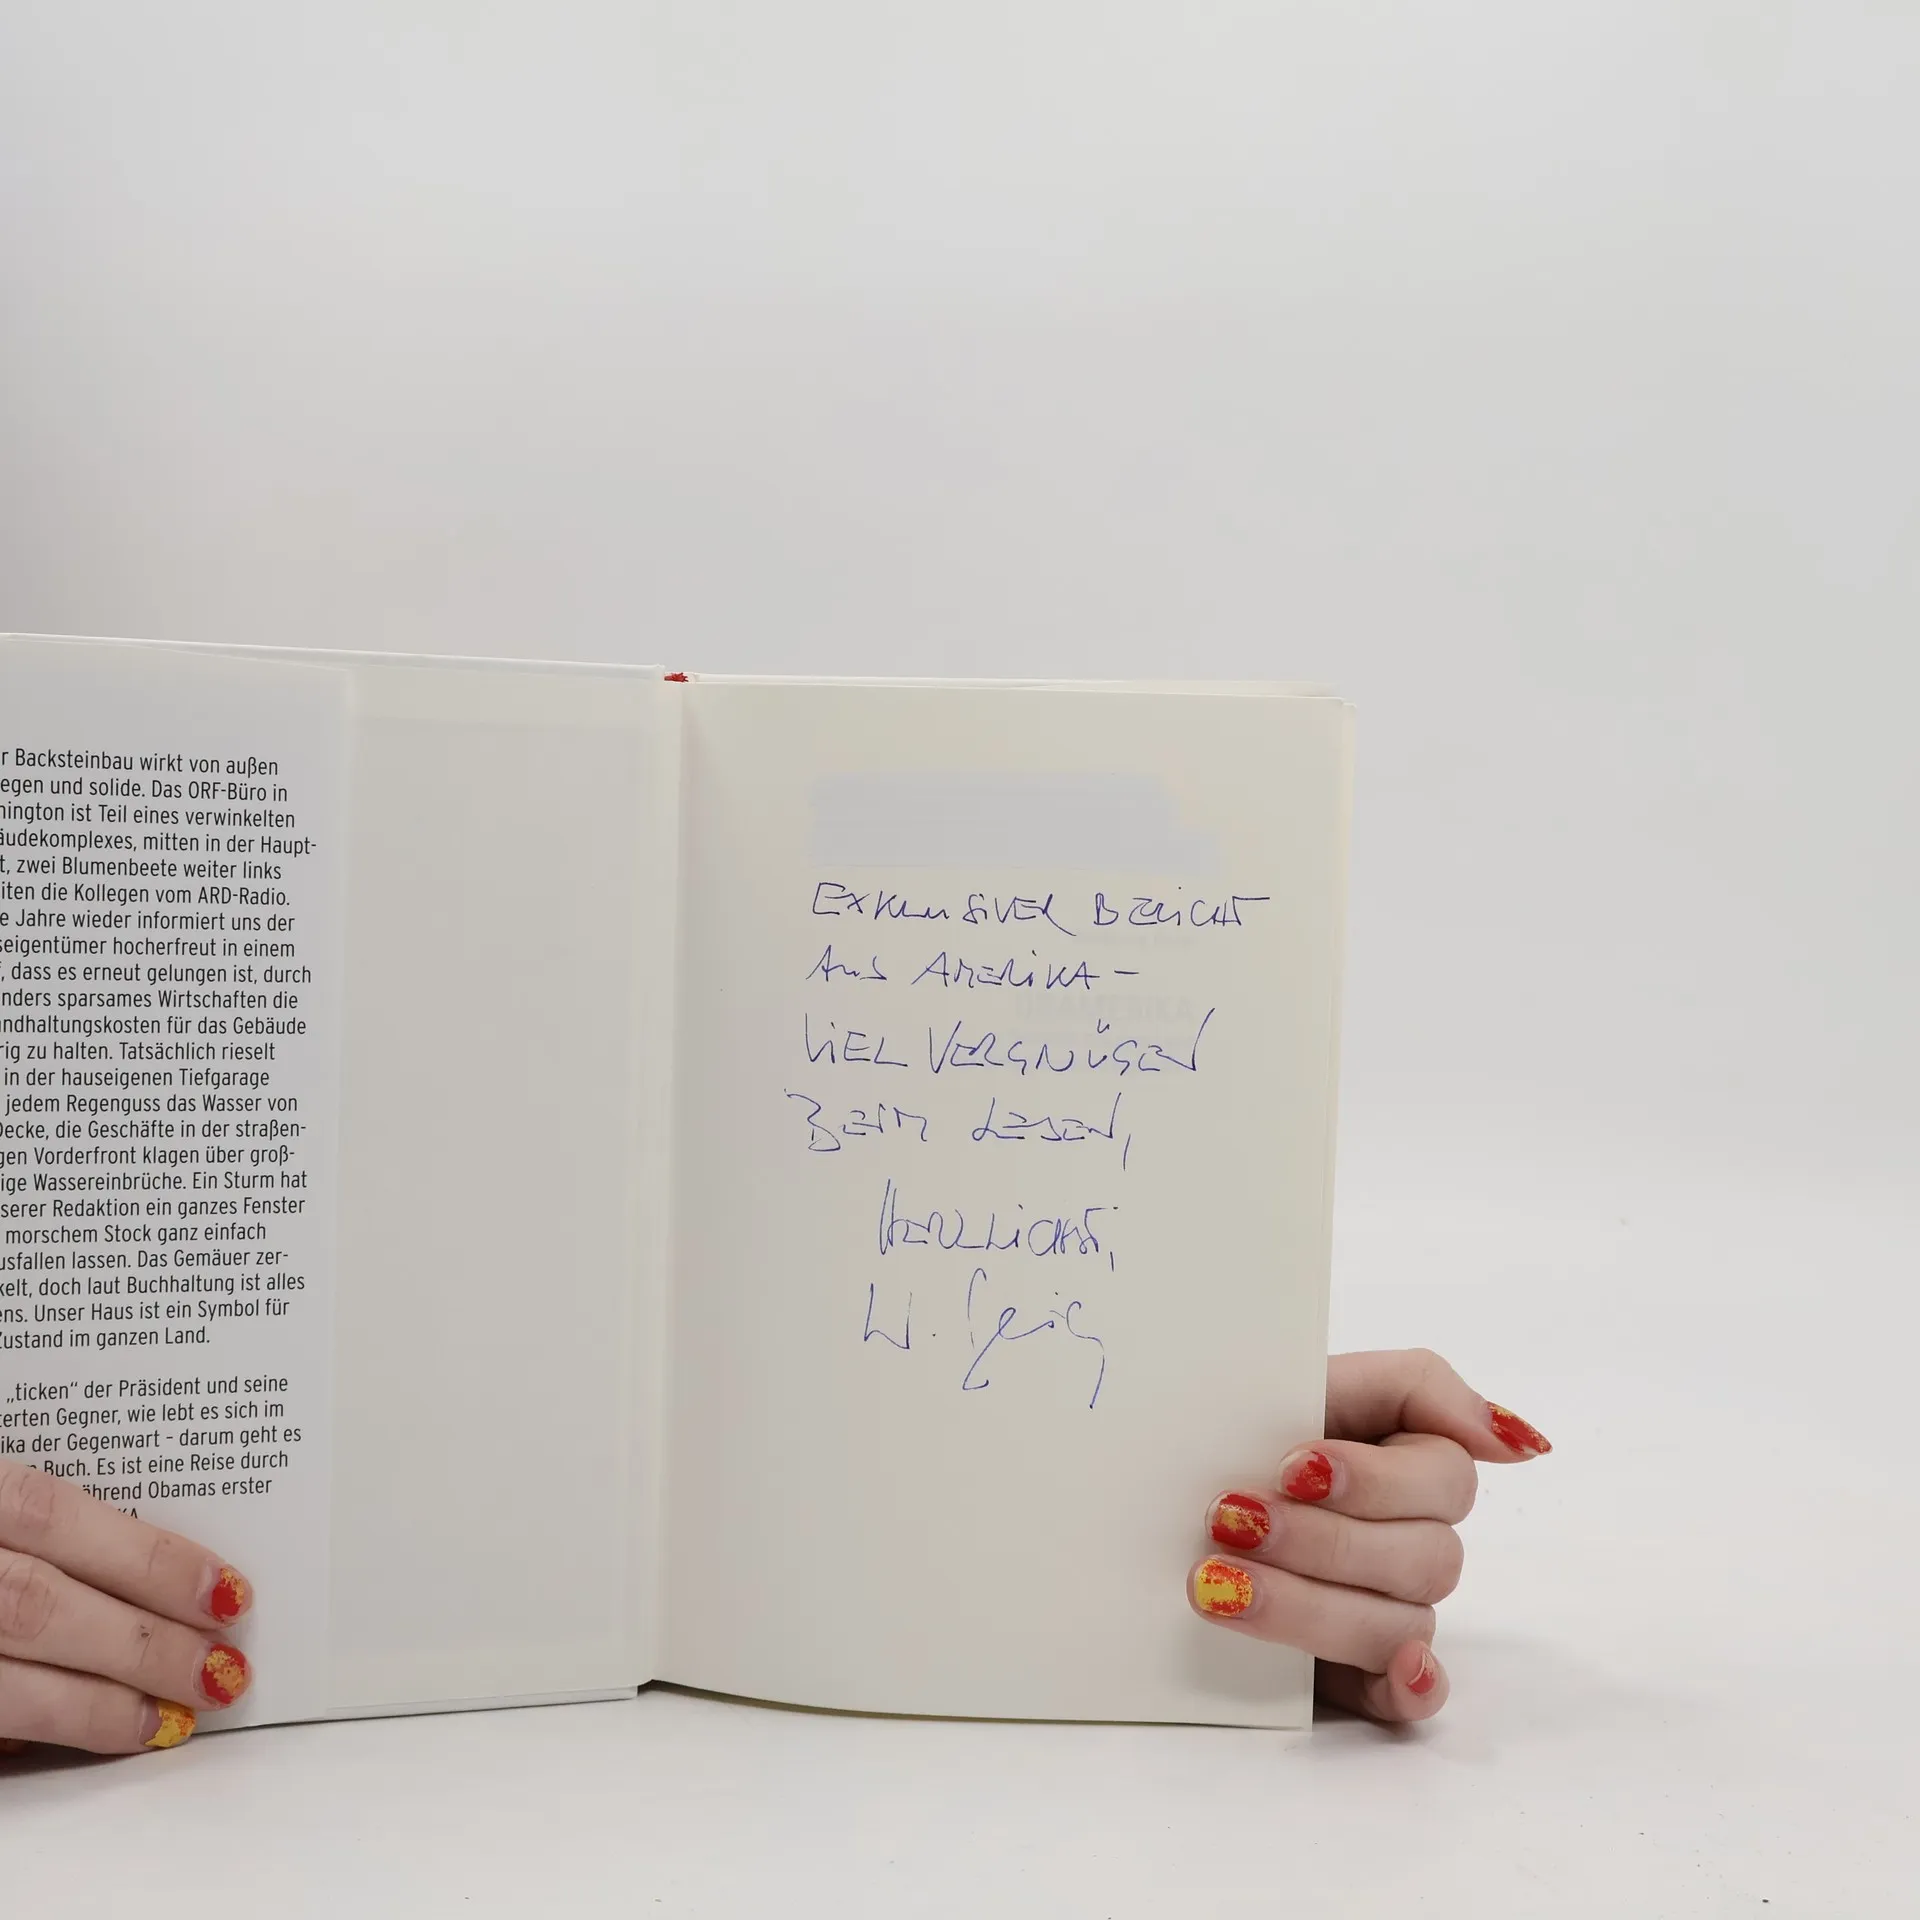 r Backsteinbau wirkt von außen
egen und solide. Das ORF-Büro in
hington ist Teil eines verwinkelten
äudekomplexes, mitten in der Haupt-
t, zwei Blumenbeete weiter links
iten die Kollegen vom ARD-Radio.
e Jahre wieder informiert uns der
seigentümer hocherfreut in einem
f, dass es erneut gelungen ist, durch
nders sparsames Wirtschaften die
andhaltungskosten für das Gebäude
rig zu halten. Tatsächlich rieselt
in der hauseigenen Tiefgarage
jedem Regenguss das Wasser von
Decke, die Geschäfte in der straßen-
gen Vorderfront klagen über groß-
ige Wassereinbrüche. Ein Sturm hat
serer Redaktion ein ganzes Fenster
morschem Stock ganz einfach
usfallen lassen. Das Gemäuer zer-
kelt, doch laut Buchhaltung ist alles
ens. Unser Haus ist ein Symbol für
Zustand im ganzen Land.
„ticken“ der Präsident und seine
terten Gegner, wie lebt es sich im
ika der Gegenwart – darum geht es
Buch. Es ist eine Reise durch
ährend Obamas erster
KA
EXKLUSIVER BERICHT
AUS AMERIKA –
VIEL VERGNÜGEN
BEIM LESEN,
HERZLICHST,
W.